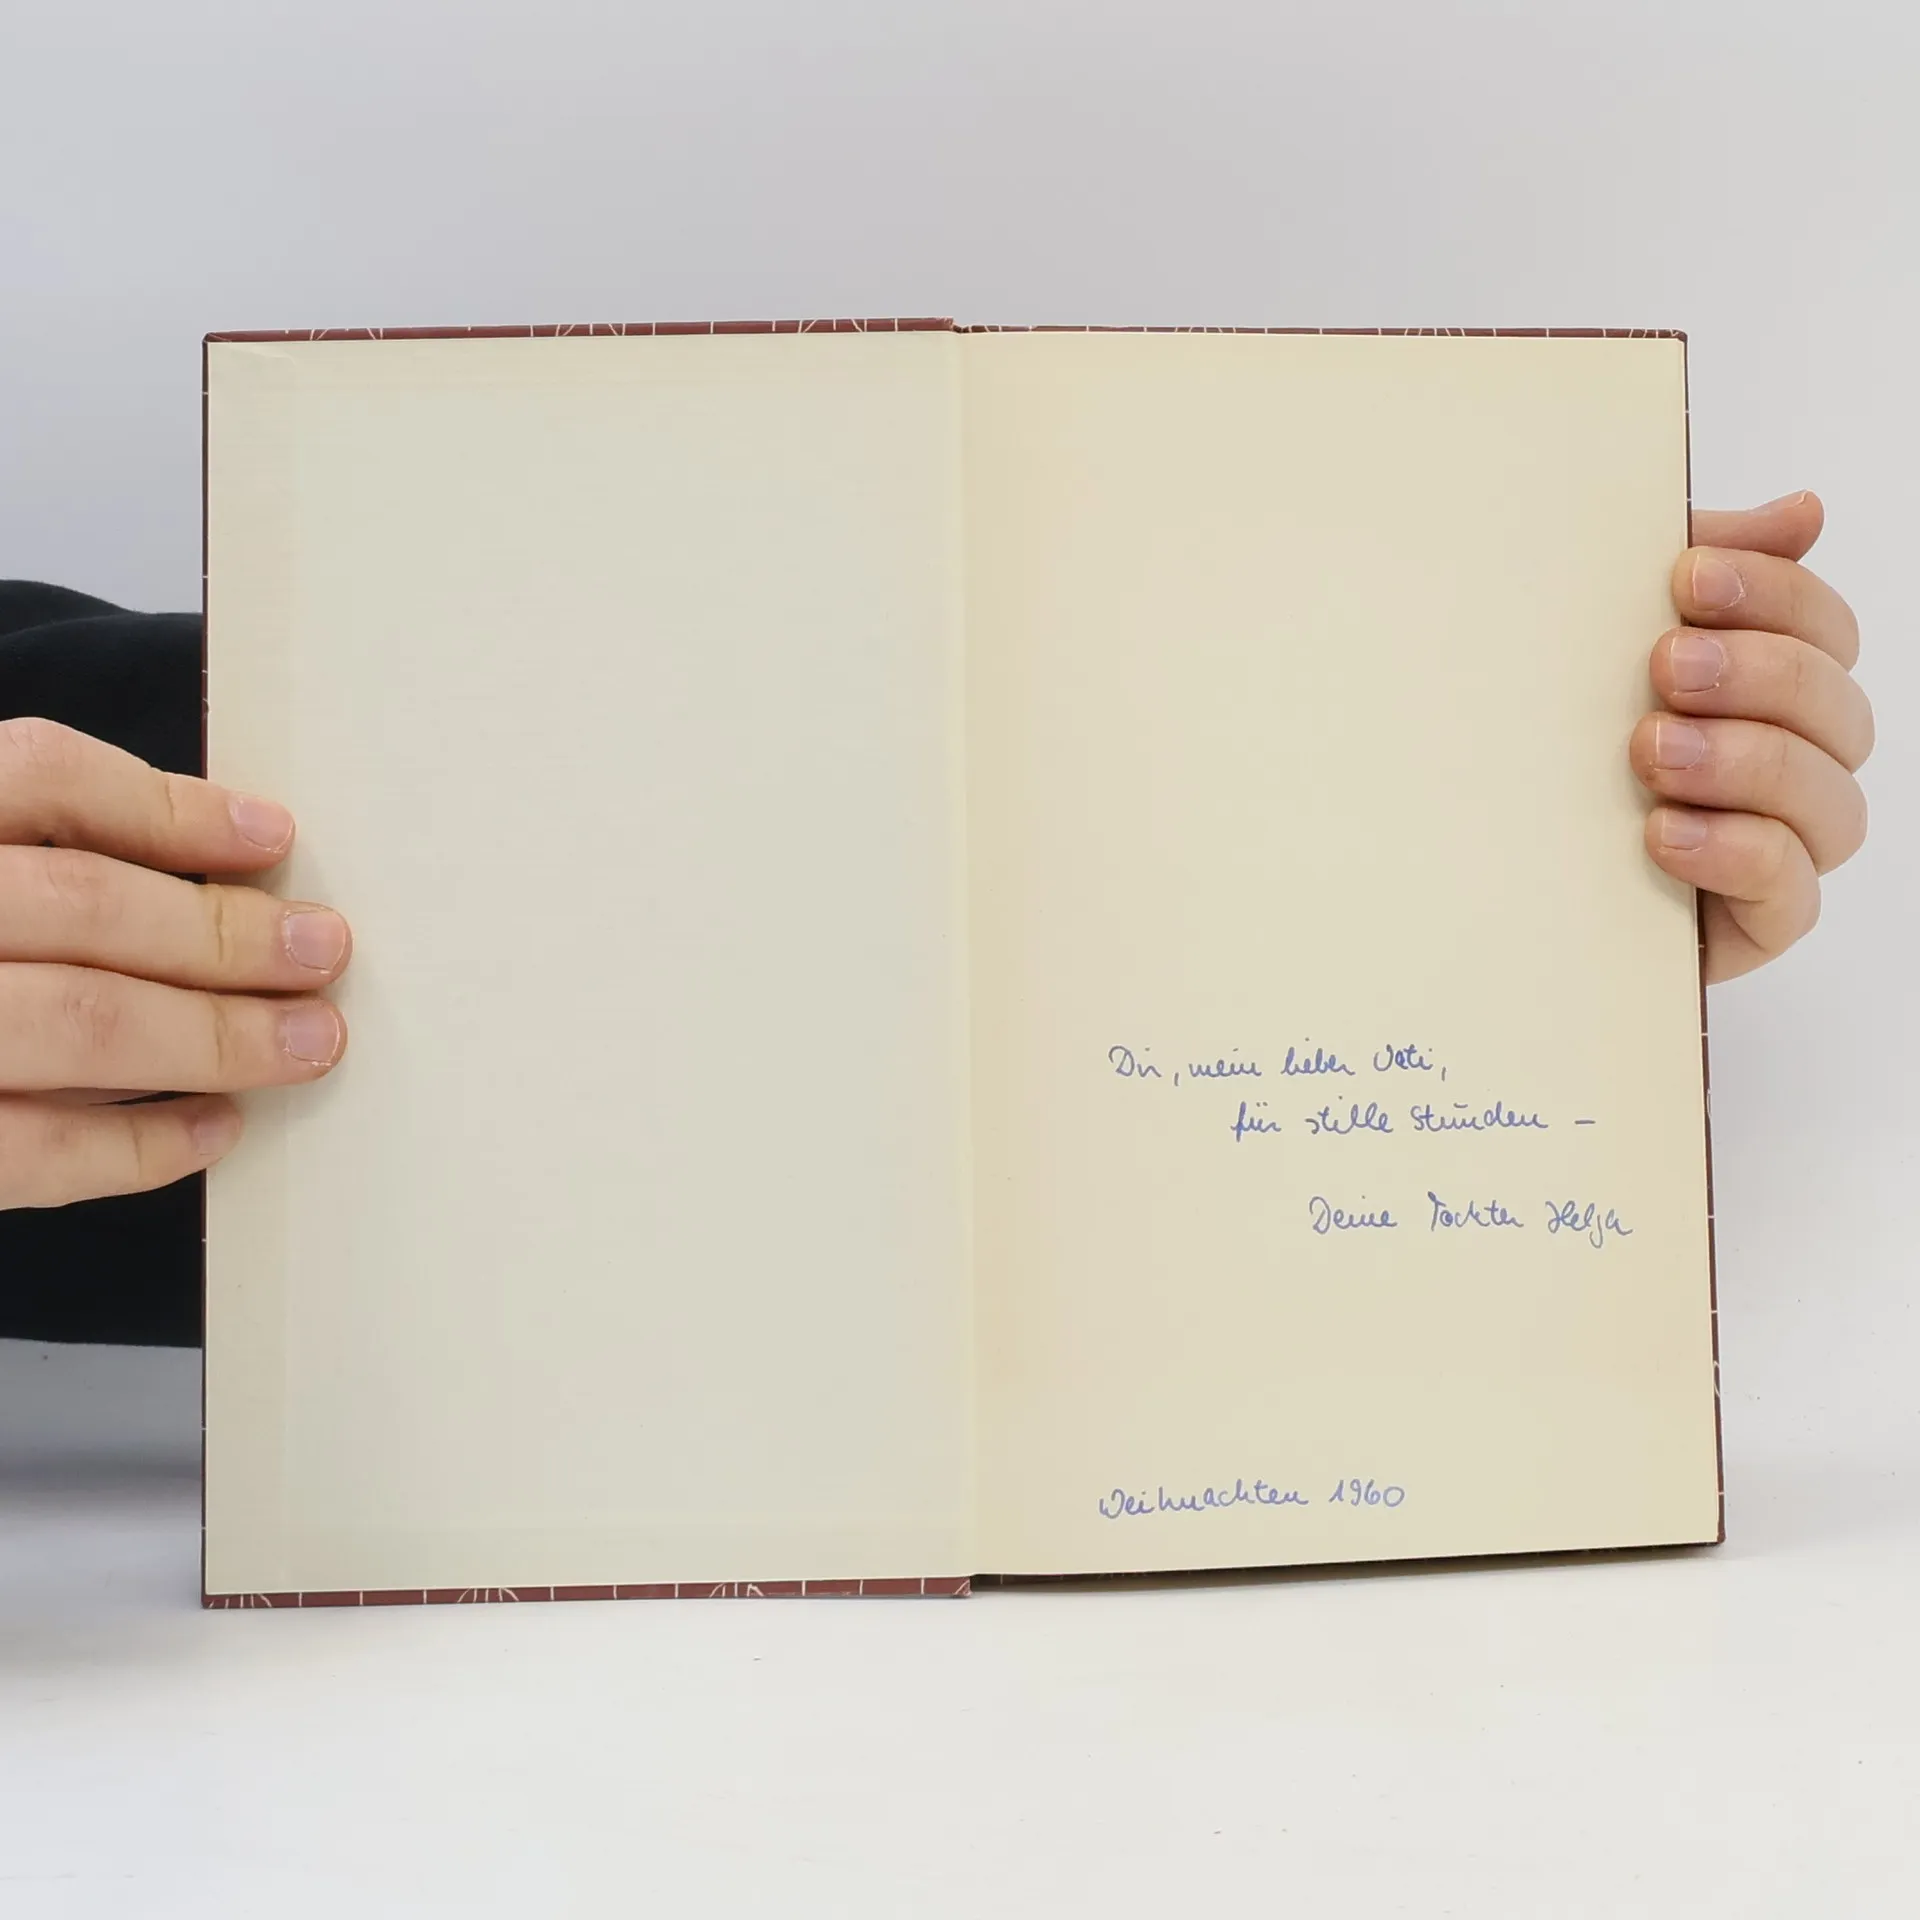 Dir, mein lieber Vati,
für stille Stunden –
Deine Tochter Helga
Weihnachten 1960